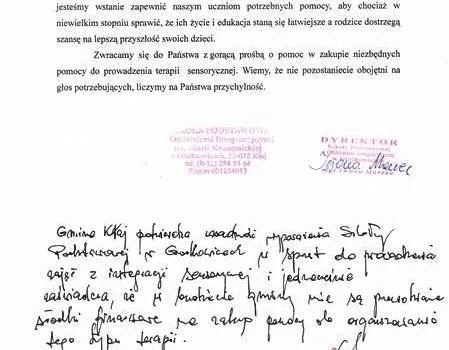 jesteśmy wstanie zapewnić naszym uczniom potrzebnych pomocy, aby chociaż w
niewielkim stopniu sprawić, że ich życie i edukacja staną się łatwiejsze a rodzice dostrzegą
szansę na lepszą przyszłość swoich dzieci.
Zwracamy się do Państwa z gorącą prośbą o pomoc w zakupie niezbędnych
pomocy do prowadzenia terapii sensorycznej. Wiemy, że nie pozostaniecie obojętni na
głos potrzebujących, liczymy na Państwa przychylność.
SZKOŁA PODSTAWOWA
z Oddziałami Integracyjnymi
im. Marii Konopnickiej
w Grodkowicach, 32-015 Kłaj
tel. (0-12) 284 54 64
Regon
DYREKTOR
Szkoły Podstawowej
Gmina Kłaj potwierdza zasadność wyposażenia Szkoły
Podstawowej w Grodkowicach w sprzęt do prowadzenia
zajęć z integracji sensorycznej i jednocześnie
zaświadcza, że w budżecie gminy nie są przewidziane
środki finansowe na zakup pomocy do organizowania
tego typu terapii.